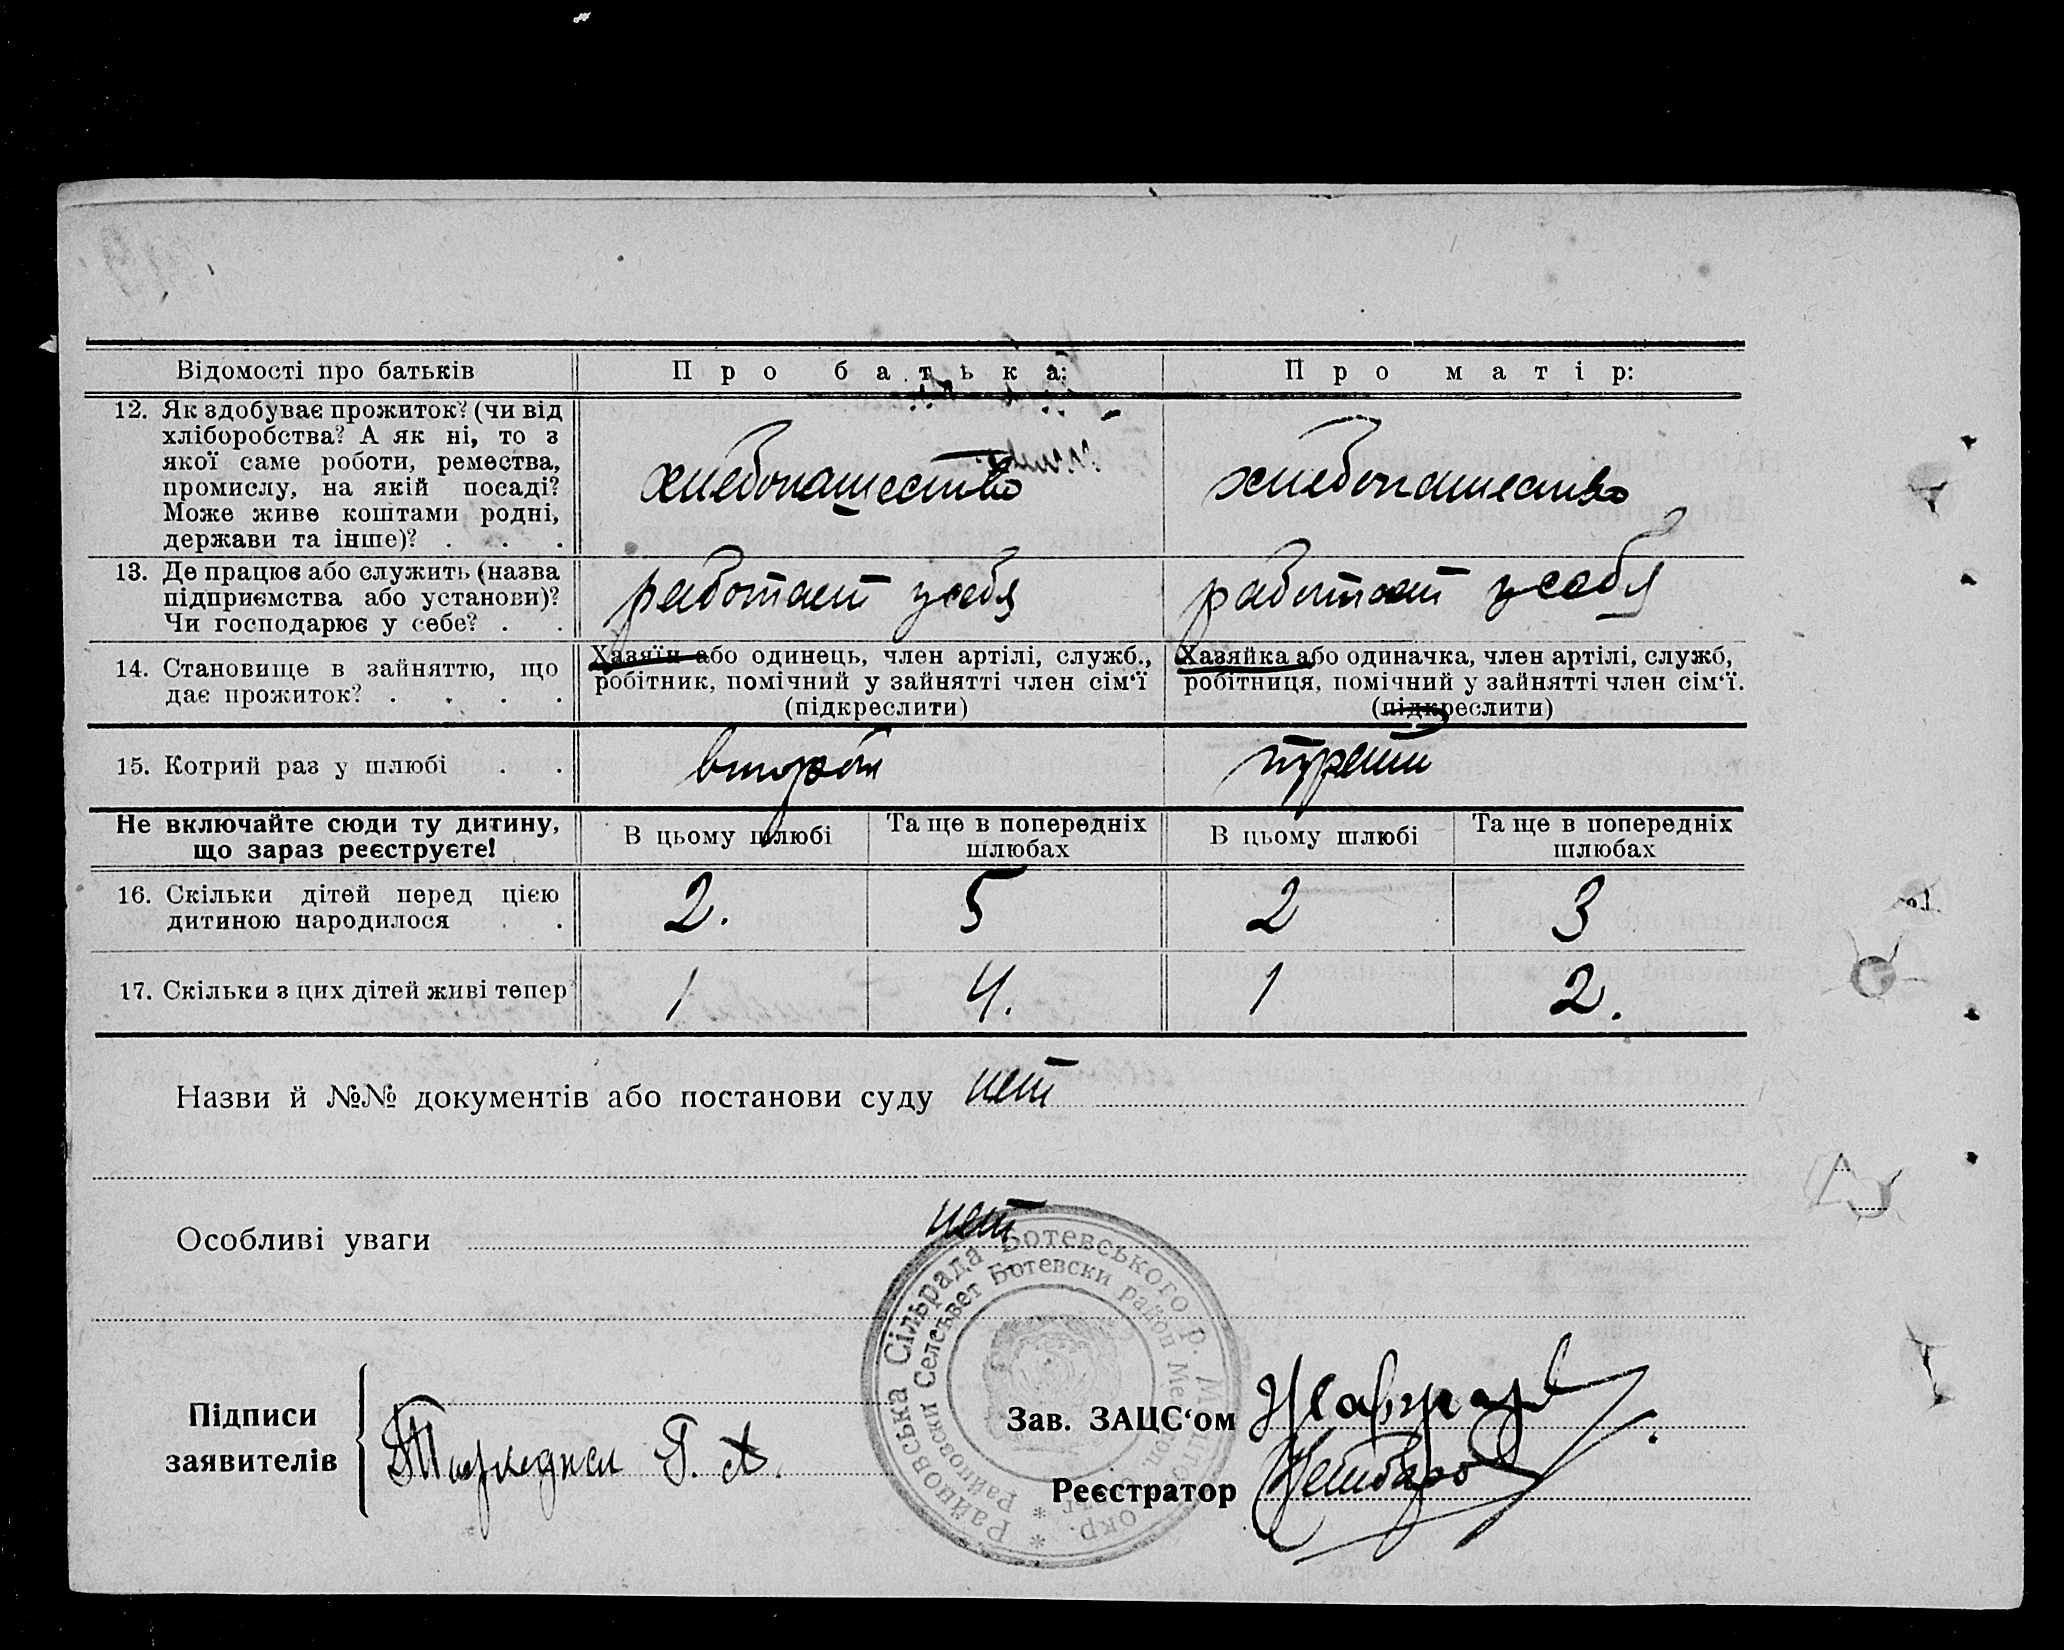 Відомості про батьків
Про батька:
Про матір:
12. Як здобуває прожиток? (чи від
хліборобства? А як ні, то з
якої саме роботи, ремества,
промислу, на якій посаді?
Може живе коштами родні,
держави та інше)? . . .
хлебопашество
хлебопашество
13. Де працює або служить (назва
підприємства або установи)?
Чи господарює у себе? . .
работает у себя
работает у себя
14. Становище в зайняттю, що
дає прожиток? . . . .
Хазяїн або одинець, член артілі, служб.,
робітник, помічний у зайнятті член сім‘ї
(підкреслити)
Хазяйка або одиначка, член артілі, служб,
робітниця, помічний у зайнятті член сім‘ї.
(підкреслити)
15. Котрий раз у шлюбі . .
второй
третий
Не включайте сюди ту дитину,
що зараз реєструєте!
В цьому шлюбі
Та ще в попередніх
шлюбах
В цьому шлюбі
Та ще в попередніх
шлюбах
16. Скільки дітей перед цією
дитиною народилося . .
2.
5
2
3
17. Скільки з цих дітей живі тепер
1
4.
1
2.
Назви й №№ документів або постанови суду нет
Особливі уваги нет
Райновська Сільрада Ботевського р. Мелітоп. окр.
Райновски Селсьвет Ботевски район Мелитоп. окр.
Підписи
заявителів
Г. А.
Зав. ЗАЦС‘ом
Реєстратор